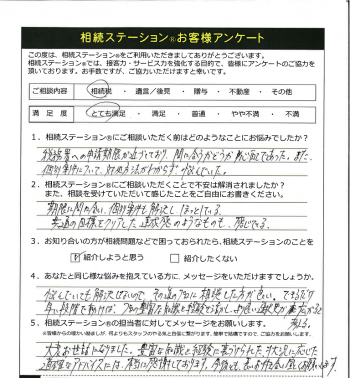 相続ステーション®お客様アンケート
この度は、相続ステーション®をご利用いただきましてありがとうございます。
相続ステーション®では、接客力・サービス力を強化する目的で、皆様にアンケートのご協力を
頂いております。お手数ですが、ご協力いただけますと幸いです。
ご相談内容 相続税 ・ 遺言/後見 ・ 贈与 ・ 不動産 ・ その他
満足度 とても満足 ・ 満足 ・ 普通 ・ やや不満 ・ 不満
1．相続ステーション®にご相談いただく前はどのようなことにお悩みでしたか？
税務署への申請期限が迫っており、間に合うかどうか心配であった。また、
個別案件について、対処方法がわからず悩んでいた。
2．相続ステーション®にご相談いただくことで不安は解消されましたか？
また、相談を受けていただいて感じたことをご自由にお書きください。
期限に間に合い、個別案件も解決しほっとしている。
共通の目標をクリアした達成感のようなものも、感じている。
3．お知り合いの方が相続問題などで困っておられたら、相続ステーション®のことを
紹介しようと思う 紹介したくない
4．あなたと同じ様な悩みを抱えている方に、メッセージをいただけますでしょうか。
悩んでいても解決しないので、その道のプロに相談した方が良い。できるだけ
早い段階で動けば、プロの豊富な知識と経験から
5．相続ステーション®の担当者に対してメッセージをお願いします。
大変お世話になりました。豊富な知識と経験に裏づけられた、
アドバイスには、本当に感謝しております。